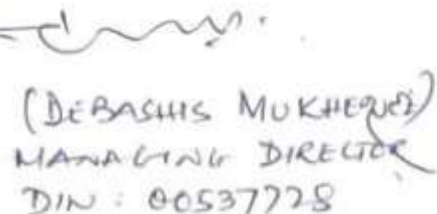 (DEBASHIS MUKHERJEE)
MANAGING DIRECTOR
DIN: 00537728